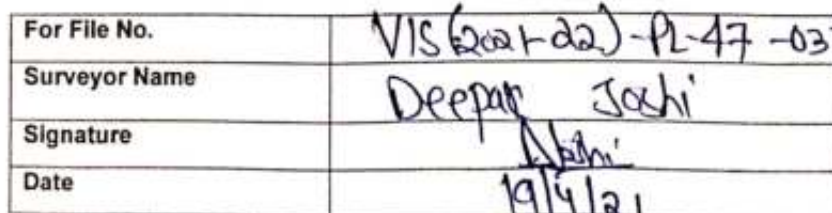 For File No. VIS(2021-22)-PL-47-03
Surveyor Name Deepak Joshi
Signature
Date 19/4/21